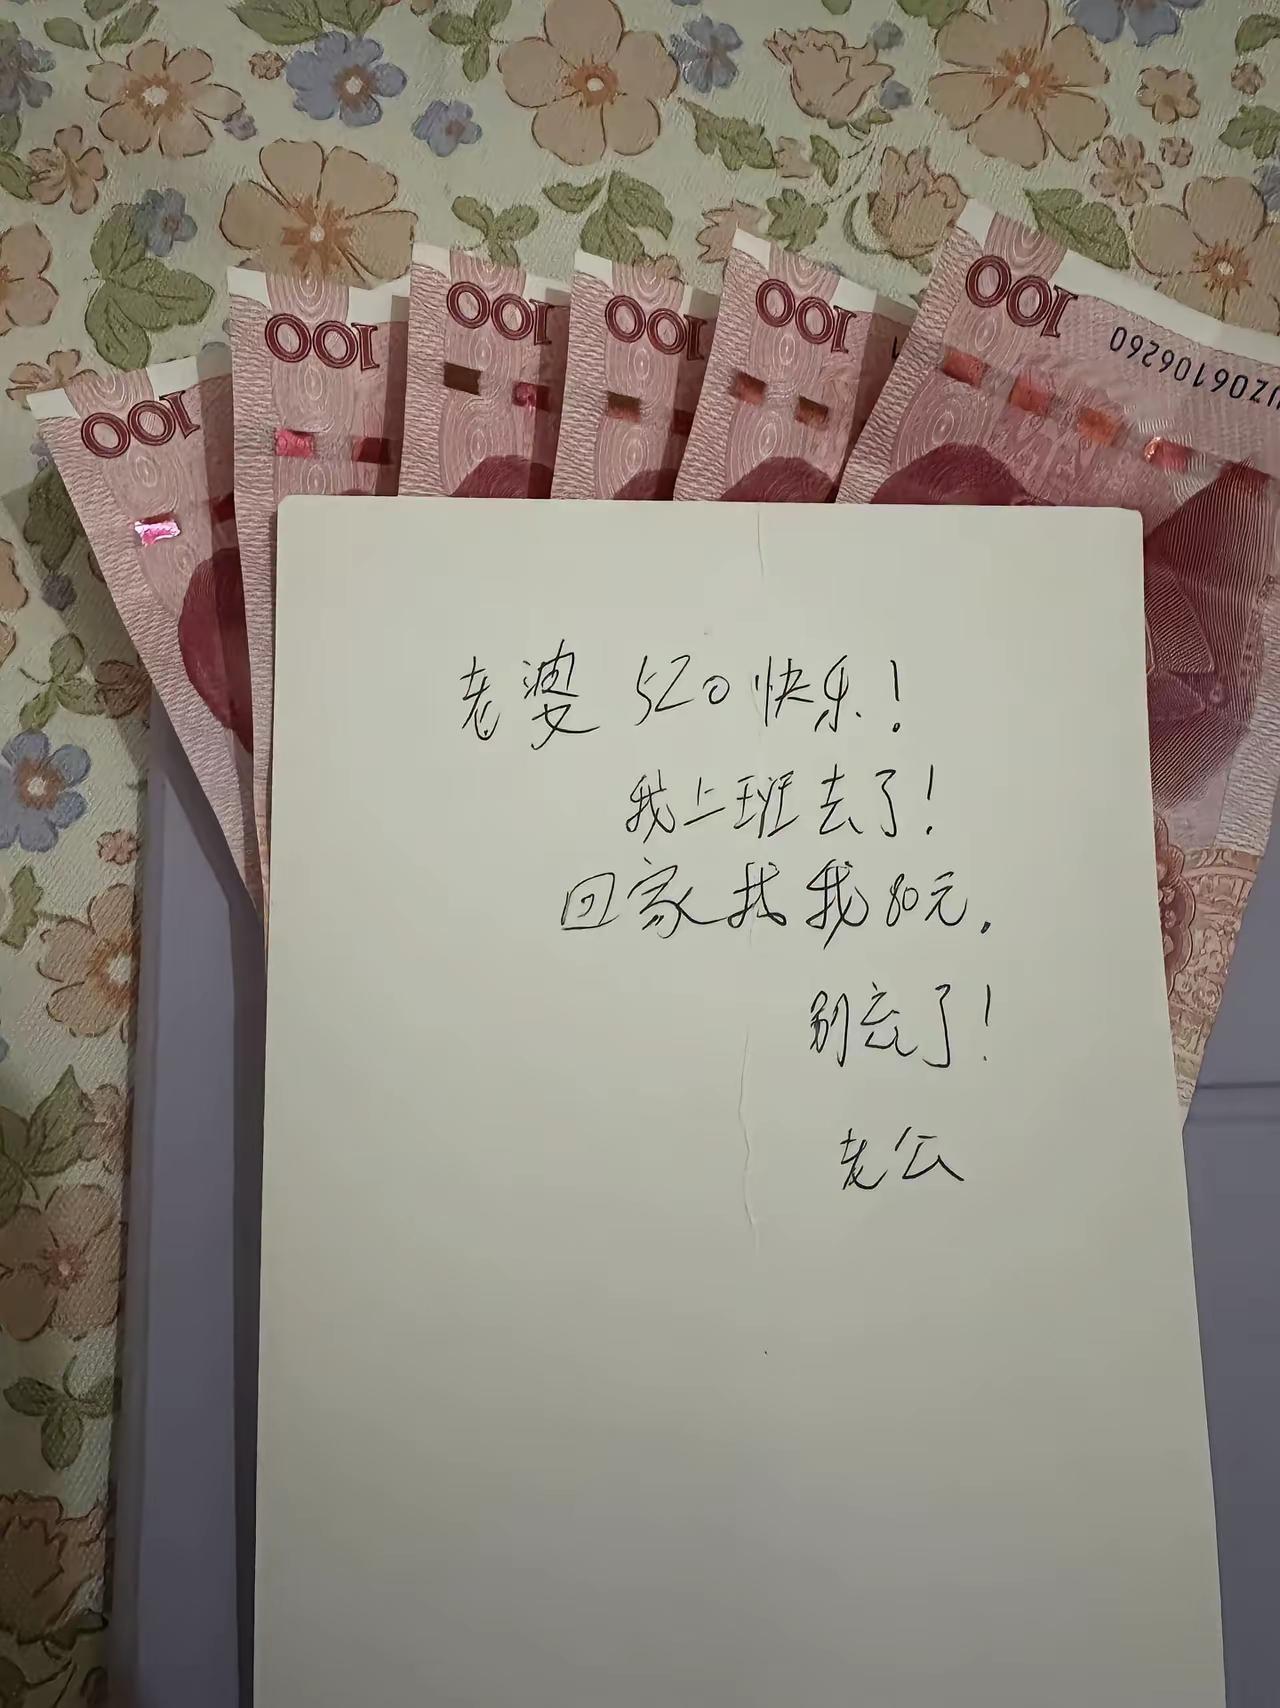 100
100
100
100
100
100
UZ06106260
老婆 520快乐！
我上班去了！
回家找我80元.
别忘了！
老公